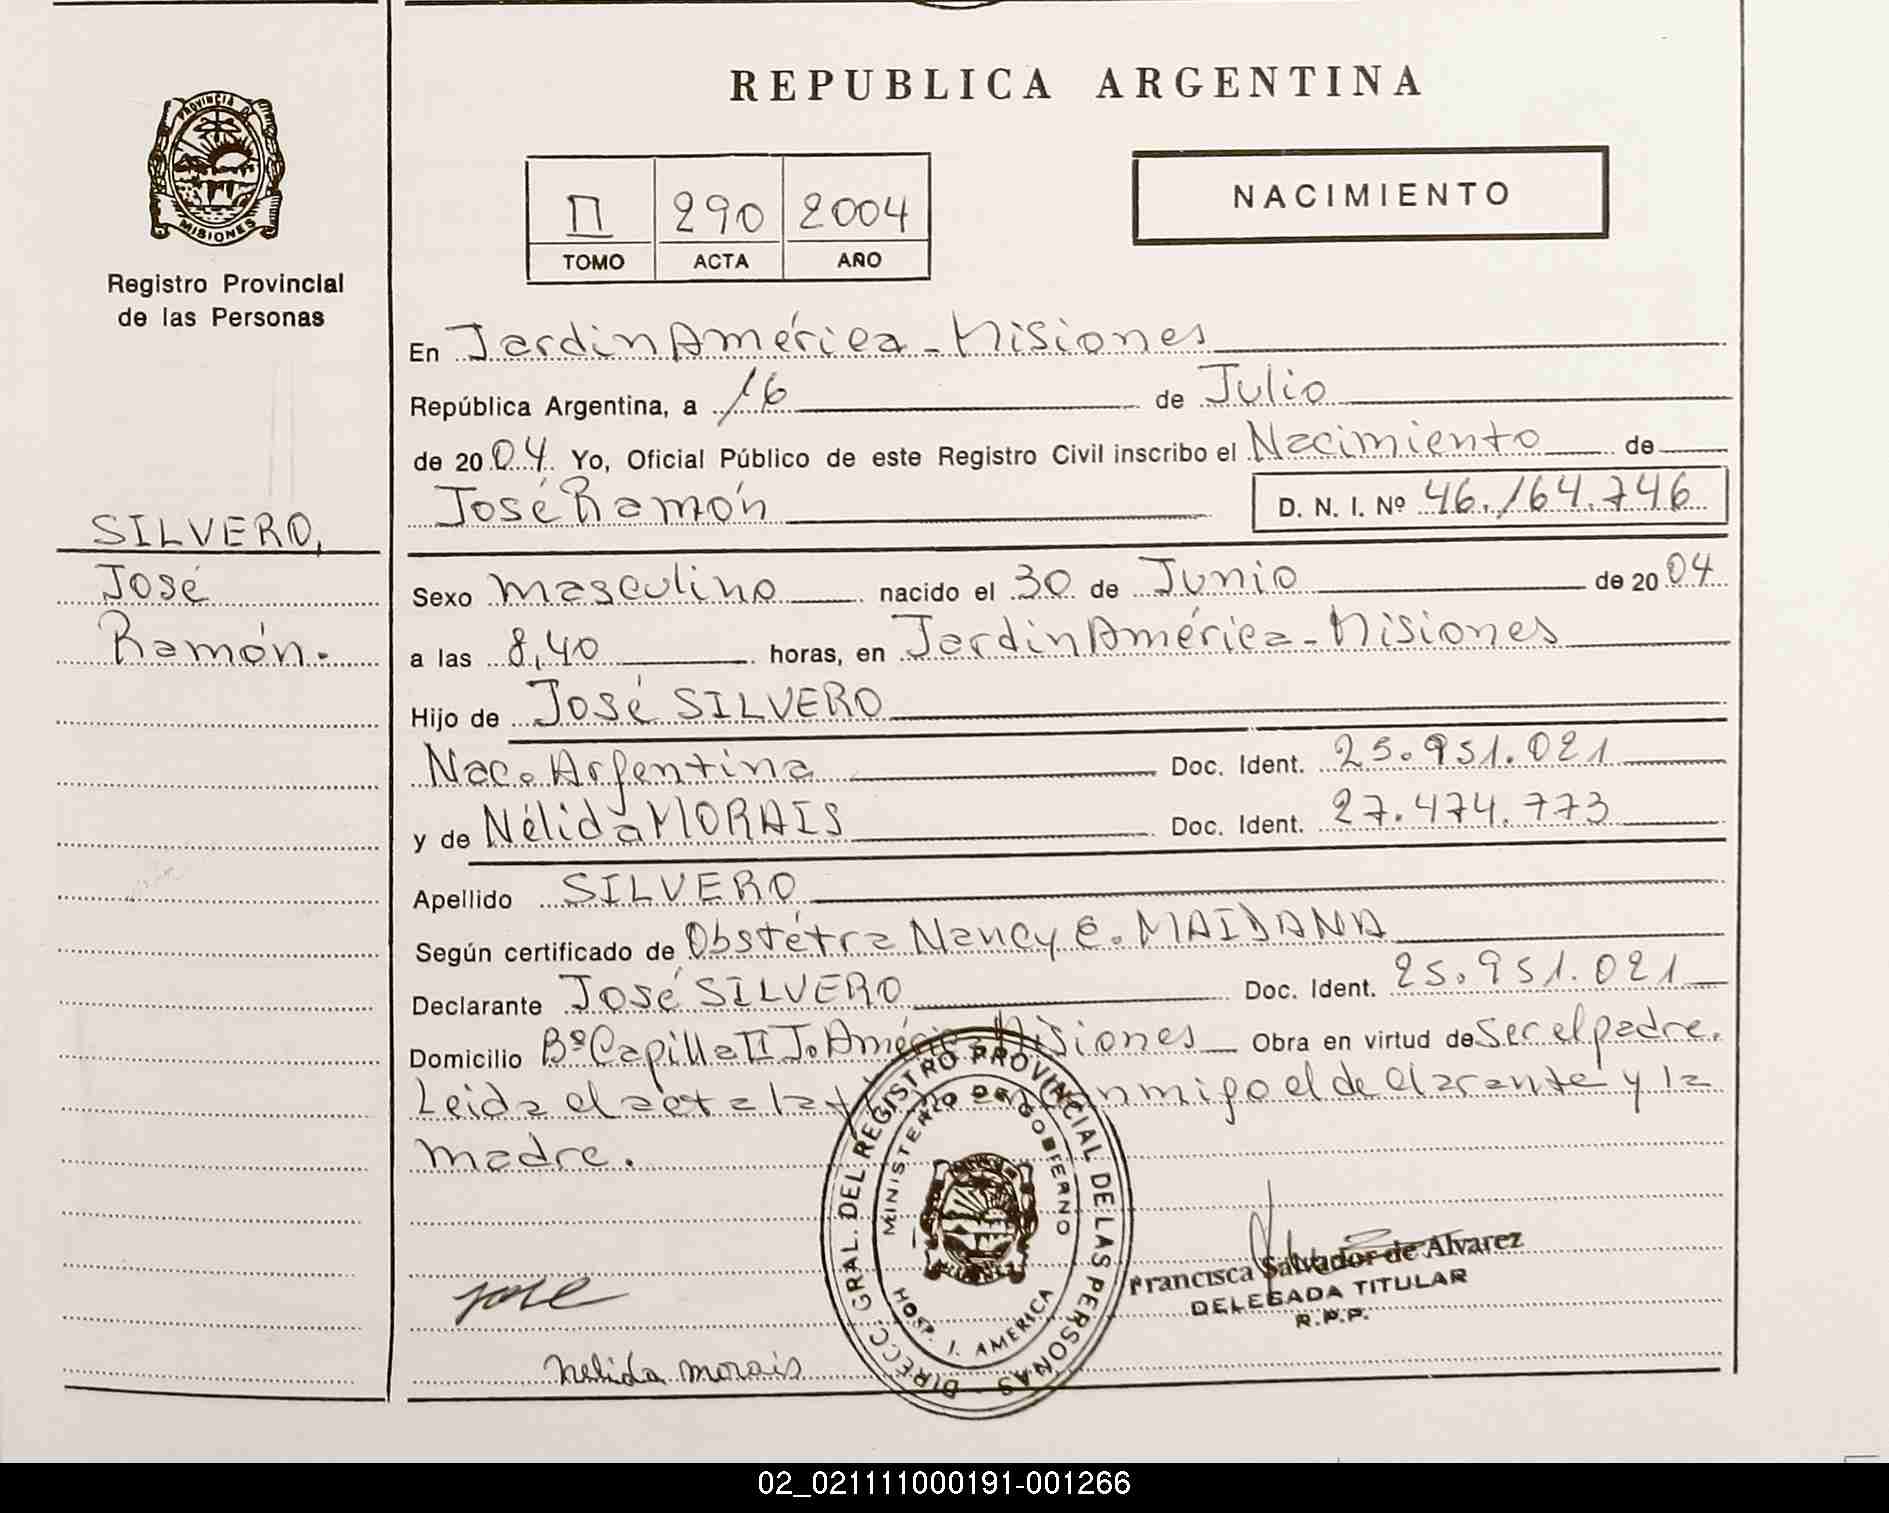 REPUBLICA ARGENTINA
PROVINCIA DE
MISIONES
Registro Provincial
de las Personas
II 290 2004
TOMO ACTA AÑO
NACIMIENTO
SILVERO,
José
Ramón.
En Jardin América - Misiones
República Argentina, a 16 de Julio
de 2004 Yo, Oficial Público de este Registro Civil inscribo el Nacimiento de
José Ramón D. N. I. Nº 46.164.746
Sexo masculino nacido el 30 de Junio de 2004
a las 8,40 horas, en Jardin América - Misiones
Hijo de José SILVERO
Nac. Argentina Doc. Ident. 25.951.021
y de Nélida MORAIS Doc. Ident. 27.474.773
Apellido SILVERO
Según certificado de Obstétra Nancy E. MAIDANA
Declarante José SILVERO Doc. Ident. 25.951.021
Domicilio Bº Capilla II J. América Misiones Obra en virtud de Ser el padre.
Leida el acta la conmigo el declarante y la
madre.
DIRECC. GRAL. DEL REGISTRO PROVINCIAL DE LAS PERSONAS
MINISTERIO DE GOBIERNO
HOSP. J. AMERICA
Francisca Salvador de Alvarez
DELEGADA TITULAR
R.P.P.
José
Nelida morais
02_021111000191-001266